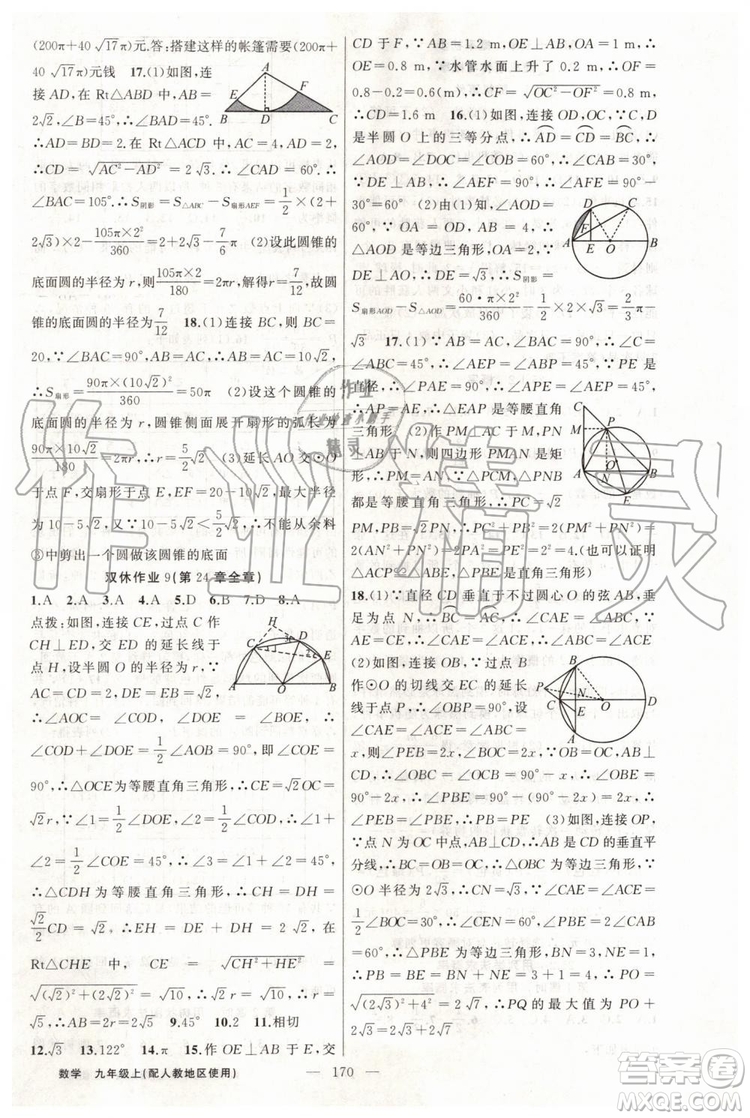 (200π+40√17π)元.答:搭建这样的帐篷需要(200π+
40√17π)元钱 17.(1)如图,连
接AD,在Rt△ABD中,AB=
2√2,∠B=45°,∴∠BAD=45°.
∴AD=BD=2.在Rt△ACD中,
∵AC=4,∴CD=
√(AC²-AD²)=2√3.∴∠CAD=60°.∴
∠BAC=105°.∴S阴影=S△ABC-S扇形AEF=1/2×(2+
2√3)×2-105π×2²/360=2+2√3-7/6π (2)设此圆锥
底面圆的半径为r,则105π×2/180=2πr,解得r=7/12,故圆
锥的底面圆的半径为7/12 18.(1)连接BC,则BC=
20,∵∠BAC=90°,AB=AC,∴AB=AC=10√2,
∴S扇形=90π×(10√2)²/360=50π (2)设这个圆锥的
底面圆的半径为r,圆锥侧面展开扇形的弧长为
90π×10√2/180=2πr,∴r=5√2/2 (3)延长AO交⊙O
于点F,交扇形于点E,EF=20-10√2,最大半径
为10-5√2,∵10-5√2<5√2/2,∴不能从余料
③中剪出一个圆做该圆锥的底面
双休作业9(第24章全章)
1.A 2.A 3.A 4.A 5.D 6.B 7.D 8.A
点拨:如图,连接CE,过点C作
CH⊥ED,交ED的延长线于
点H,设半圆O的半径为r,∵
AC=CD=2,BE=DE=√2,
∴∠AOC=∠COD,∠DOE=∠BOE,∴
∠COD+∠DOE=1/2∠AOB=90°,即∠COE=
90°.∴△COE为等腰直角三角形,∴CE=√2OC=
√2r,∵∠1=1/2∠COD,∠2=1/2∠DOE,∴∠1
+∠2=1/2∠COE=45°,∴∠CDH=∠1+∠2=
45°,∴△CDH为等腰直角三角形,∴DH=CH=
√2/2CD=√2,∴EH=DH+DE=2√2,在
Rt△CHE中,CE=√(CH²+HE²)=
√((√2)²+(2√2)²)=√10,∴√2r=√10,∴r=
√5,∴AB=2r=2√5 9.45° 10.2 11.相切
12.√3 13.122° 14.π 15.作OE⊥AB于E,交
CD于F,∵AB=1.2 m,OE⊥AB,OA=1 m,∴
OE=0.8 m,∵水管水面上升了0.2 m,∴OF=
0.8-0.2=0.6(m),∴CF=√(OC²-OF²)=0.8 m,
∴CD=1.6 m 16.(1)如图,连接OD,OC,∵C、D
是半圆O上的三等分点,∴AD=CD=BC,∴
∠AOD=∠COD=∠COB=60°,∴∠CAB=30°,
∵DE⊥AB,∴∠AEF=90°,∴∠AFE=90°-
30°=60° (2)由(1)知,∠AOD=
60°,∵OA=OD,AB=4,∴
△AOD是等边三角形,OA=2,
∵DE⊥AO,∴DE=√3,∴S阴影=
S扇形AOD-S△AOD=60·π×2²/360-1/2×2×√3=2/3π-
√3 17.(1)∵AB=AC,∠BAC=90°,∴∠C=
∠ABC=45°,∴∠AEP=∠ABP=45°,∵PE是
直径,∴∠PAE=90°,∴∠APE=∠AEP=45°,
∴AP=AE,∴△PAE是等腰直角
三角形 (2)作PM⊥AC于M,PN⊥
AB于N,则四边形PMAN是矩形,
∴PM=AN,∵△PCM,△PNB
都是等腰直角三角形,∴PC=√2
PM,PB=√2PN,∴PC²+PB²=2(PM²+PN²)=
2(AN²+PN²)=2PA²=PE²=2²=4(也可以证
明△ACP≌△ABE,△PBE是直角三角形)
18.(1)∵直径CD垂直于不过圆心O的弦AB,垂
足为点N,∴CA=CB,∴∠CAE=∠ABC,∵AE
=CE,∴∠CAE=∠ACE,∴∠ABC=∠ACE
(2)如图,连接OB,∵过点B
作⊙O的切线交EC的延长
线于点P,∴∠OBP=90°,设
∠CAE=∠ACE=∠ABC=
x,则∠PEB=2x,∵OB=OC,AB⊥CD,∴
∠OBC=∠OCB=90°-x,∴∠BOC=180°-
2(90°-x)=2x,∴∠OBE=90°-2x,∴∠PBE=
90°-(90°-2x)=2x,∴∠PEB=∠PBE,∴PB=PE (3)如图,连接OP,
∵点N为OC中点,AB⊥CD,∴AB是CD的垂直平
分线,∴BC=OB=OC,∴△OBC为等边三角形,∵
⊙O半径为2√3,∴CN=√3,∵∠CAE=∠ACE=
1/2∠BOC=30°,∴∠CEN=60°,∠PBE=2∠CAE=
60°,∴△PBE为等边三角形,BN=3,NE=1,
∴PB=BE=BN+NE=3+1=4,∴PO=
√((2√3)²+4²)=2√7,∴PQ的最大值为PO+
2√3=2√3+2√7
数学 九年级上(配人教地区使用) — 170 —